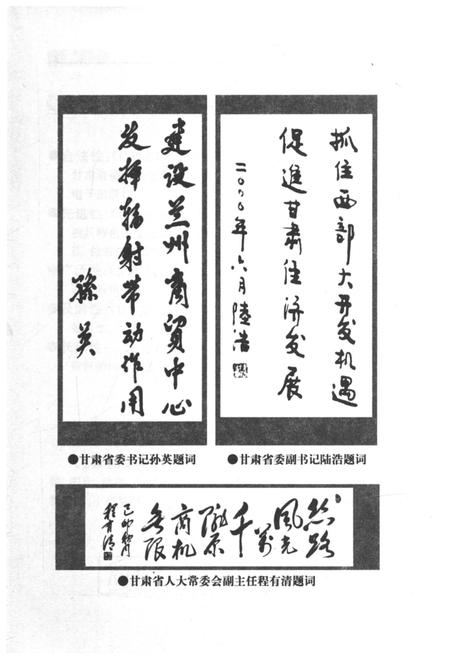 建设兰州商贸中心
发挥辐射带动作用
孙英
抓住西部大开发机遇
促進甘肃经济发展
二〇〇〇年六月陸浩
●甘肃省委书记孙英题词
●甘肃省委副书记陆浩题词
丝路
风光
千万
商机
无限
程有清
●甘肃省人大常委会副主任程有清题词